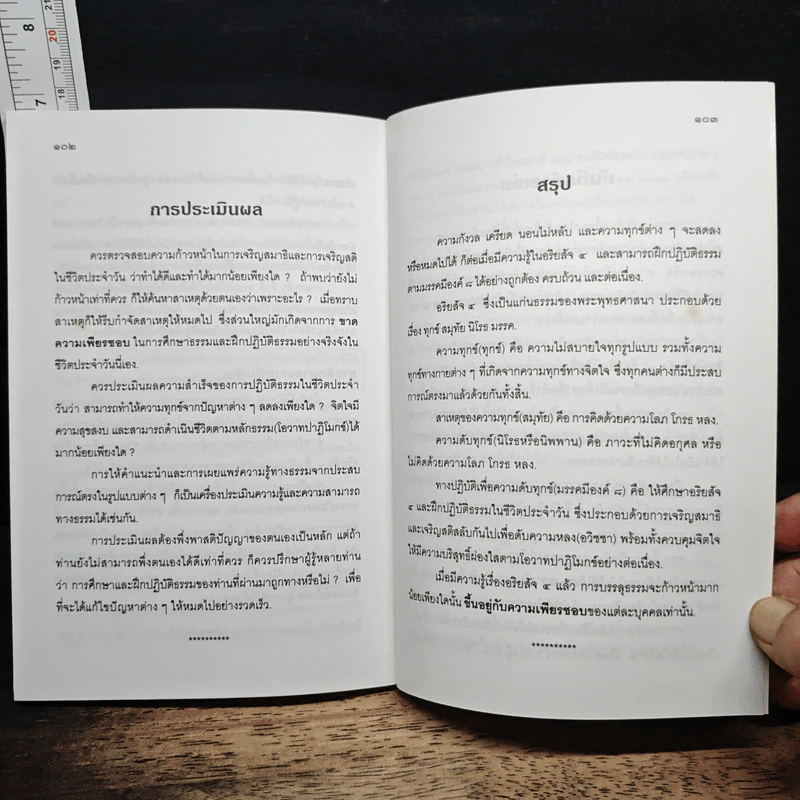 8
7
21
20
19
18
๑๐๒
การประเมินผล
ควรตรวจสอบความก้าวหน้าในการเจริญสมาธิและการเจริญสติ
ในชีวิตประจำวัน ว่าทำได้ดีและทำได้มากน้อยเพียงใด ? ถ้าพบว่ายังไม่
ก้าวหน้าเท่าที่ควร ก็ให้ค้นหาสาเหตุด้วยตนเองว่าเพราะอะไร ? เมื่อทราบ
สาเหตุก็ให้รีบกำจัดสาเหตุให้หมดไป ซึ่งส่วนใหญ่มักเกิดจากการ ขาด
ความเพียรชอบ ในการศึกษาธรรมและฝึกปฏิบัติธรรมอย่างจริงจังใน
ชีวิตประจำวันนี่เอง.
ควรประเมินผลความสำเร็จของการปฏิบัติธรรมในชีวิตประจำ
วันว่า สามารถทำให้ความทุกข์จากปัญหาต่าง ๆ ลดลงเพียงใด ? จิตใจมี
ความสุขสงบ และสามารถดำเนินชีวิตตามหลักธรรม(โอวาทปาฏิโมกข์)ได้
มากน้อยเพียงใด ?
การให้คำแนะนำและการเผยแพร่ความรู้ทางธรรมจากประสบ
การณ์ตรงในรูปแบบต่าง ๆ ก็เป็นเครื่องประเมินความรู้และความสามารถ
ทางธรรมได้เช่นกัน.
การประเมินผลต้องพึ่งพาสติปัญญาของตนเองเป็นหลัก แต่ถ้า
ท่านยังไม่สามารถพึ่งตนเองได้ดีเท่าที่ควร ก็ควรปรึกษาผู้รู้หลายท่าน
ว่า การศึกษาและฝึกปฏิบัติธรรมของท่านที่ผ่านมาถูกทางหรือไม่ ? เพื่อ
ที่จะได้แก้ไขปัญหาต่าง ๆ ให้หมดไปอย่างรวดเร็ว.
**********
๑๐๓
สรุป
ความกังวล เครียด นอนไม่หลับ และความทุกข์ต่าง ๆ จะลดลง
หรือหมดไปได้ ก็ต่อเมื่อมีความรู้ในอริยสัจ ๔ และสามารถฝึกปฏิบัติธรรม
ตามมรรคมีองค์ ๘ ได้อย่างถูกต้อง ครบถ้วน และต่อเนื่อง.
อริยสัจ ๔ ซึ่งเป็นแก่นธรรมของพระพุทธศาสนา ประกอบด้วย
เรื่อง ทุกข์ สมุทัย นิโรธ มรรค.
ความทุกข์(ทุกข์) คือ ความไม่สบายใจทุกรูปแบบ รวมทั้งความ
ทุกข์ทางกายต่าง ๆ ที่เกิดจากความทุกข์ทางจิตใจ ซึ่งทุกคนต่างก็มีประสบ
การณ์ตรงมาแล้วด้วยกันทั้งสิ้น.
สาเหตุของความทุกข์(สมุทัย) คือ การคิดด้วยความโลภ โกรธ หลง.
ความดับทุกข์(นิโรธหรือนิพพาน) คือ ภาวะที่ไม่คิดอกุศล หรือ
ไม่คิดด้วยความโลภ โกรธ หลง.
ทางปฏิบัติเพื่อความดับทุกข์(มรรคมีองค์ ๘) คือ ให้ศึกษาอริยสัจ
๔ และฝึกปฏิบัติธรรมในชีวิตประจำวัน ซึ่งประกอบด้วยการเจริญสมาธิ
และเจริญสติสลับกันไปเพื่อดับความหลง(อวิชชา) พร้อมทั้งควบคุมจิตใจ
ให้มีความบริสุทธิ์ผ่องใสตามโอวาทปาฏิโมกข์อย่างต่อเนื่อง.
เมื่อมีความรู้เรื่องอริยสัจ ๔ แล้ว การบรรลุธรรมจะก้าวหน้ามาก
น้อยเพียงใดนั้น ขึ้นอยู่กับความเพียรชอบของแต่ละบุคคลเท่านั้น.
**********